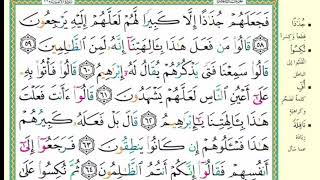 فَجَعَلَهُمْ جُذَاذًا إِلَّا كَبِيرًا لَّهُمْ لَعَلَّهُمْ إِلَيْهِ يَرْجِعُونَ
٥٨ قَالُوا مَن فَعَلَ هَٰذَا بِآلِهَتِنَا إِنَّهُ لَمِنَ الظَّالِمِينَ ٥٩
قَالُوا سَمِعْنَا فَتًى يَذْكُرُهُمْ يُقَالُ لَهُ إِبْرَاهِيمُ ٦٠ قَالُوا فَأْتُوا بِهِ
عَلَىٰ أَعْيُنِ النَّاسِ لَعَلَّهُمْ يَشْهَدُونَ ٦١ قَالُوا ءَأَنتَ فَعَلْتَ
هَٰذَا بِآلِهَتِنَا يَا إِبْرَاهِيمُ ٦٢ قَالَ بَلْ فَعَلَهُ كَبِيرُهُمْ
هَٰذَا فَسْـَٔلُوهُمْ إِن كَانُوا يَنطِقُونَ ٦٣ فَرَجَعُوا إِلَىٰ
أَنفُسِهِمْ فَقَالُوا إِنَّكُمْ أَنتُمُ الظَّالِمُونَ ٦٤ ثُمَّ نُكِسُوا عَلَىٰ
جُذَاذًا
نُكِسُوا
أُفٍّ
نَافِلَةً